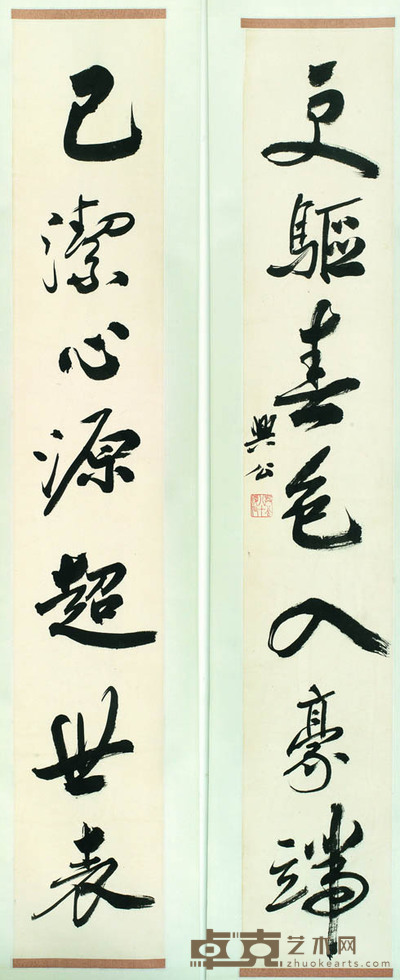 已潔心源超世表
更驅春色入豪端
興公
卓克艺术网
zhuokearts.com